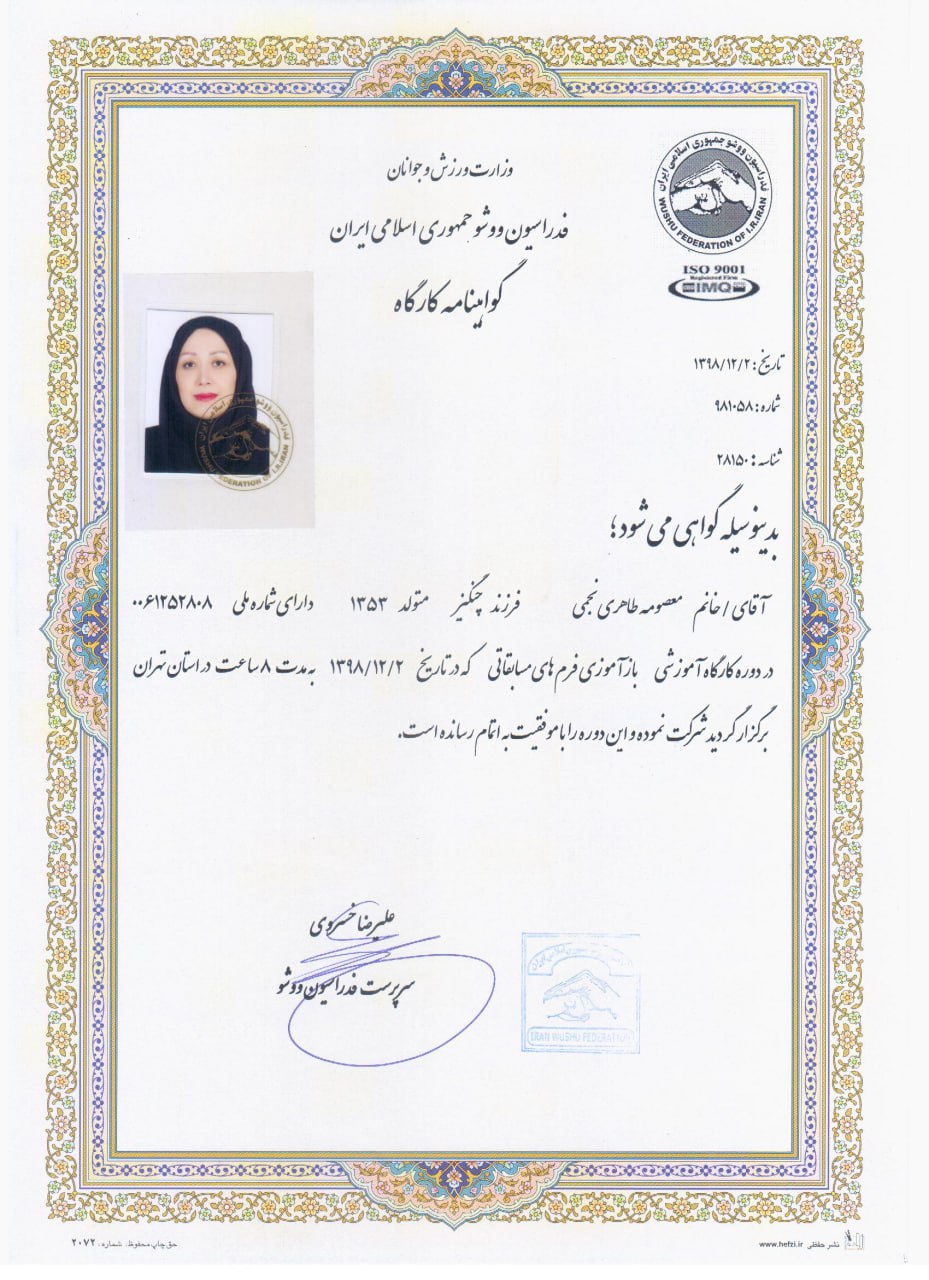 وزارت ورزش و جوانان
فدراسیون ووشو جمهوری اسلامی ایران
گواهینامه کارگاه
فدراسیون ووشو جمهوری اسلامی ایران
WUSHU FEDERATION OF I.R.IRAN
ISO 9001
Registered Firm
IMQ
تاریخ: ۱۳۹۸/۱۲/۲
شماره: ۹۸۱۰۵۸
شناسه: ۲۸۱۵۰
بدینوسیله گواهی می شود؛
آقای / خانم معصومه طاهری نجمی فرزند چنگیز متولد ۱۳۵۳ دارای شماره ملی ۰۰۶۱۲۵۲۸۰۸
در دوره کارگاه آموزشی بازآموزی فرم های مسابقاتی که در تاریخ ۱۳۹۸/۱۲/۲ به مدت ۸ ساعت در استان تهران
برگزار گردید شرکت نموده و این دوره را با موفقیت به اتمام رسانده است.
علیرضا خسروی
سرپرست فدراسیون ووشو
IRAN WUSHU FEDERATION
حق چاپ محفوظ. شماره: ۲۰۷۲
نشر حفظی www.hefzi.ir